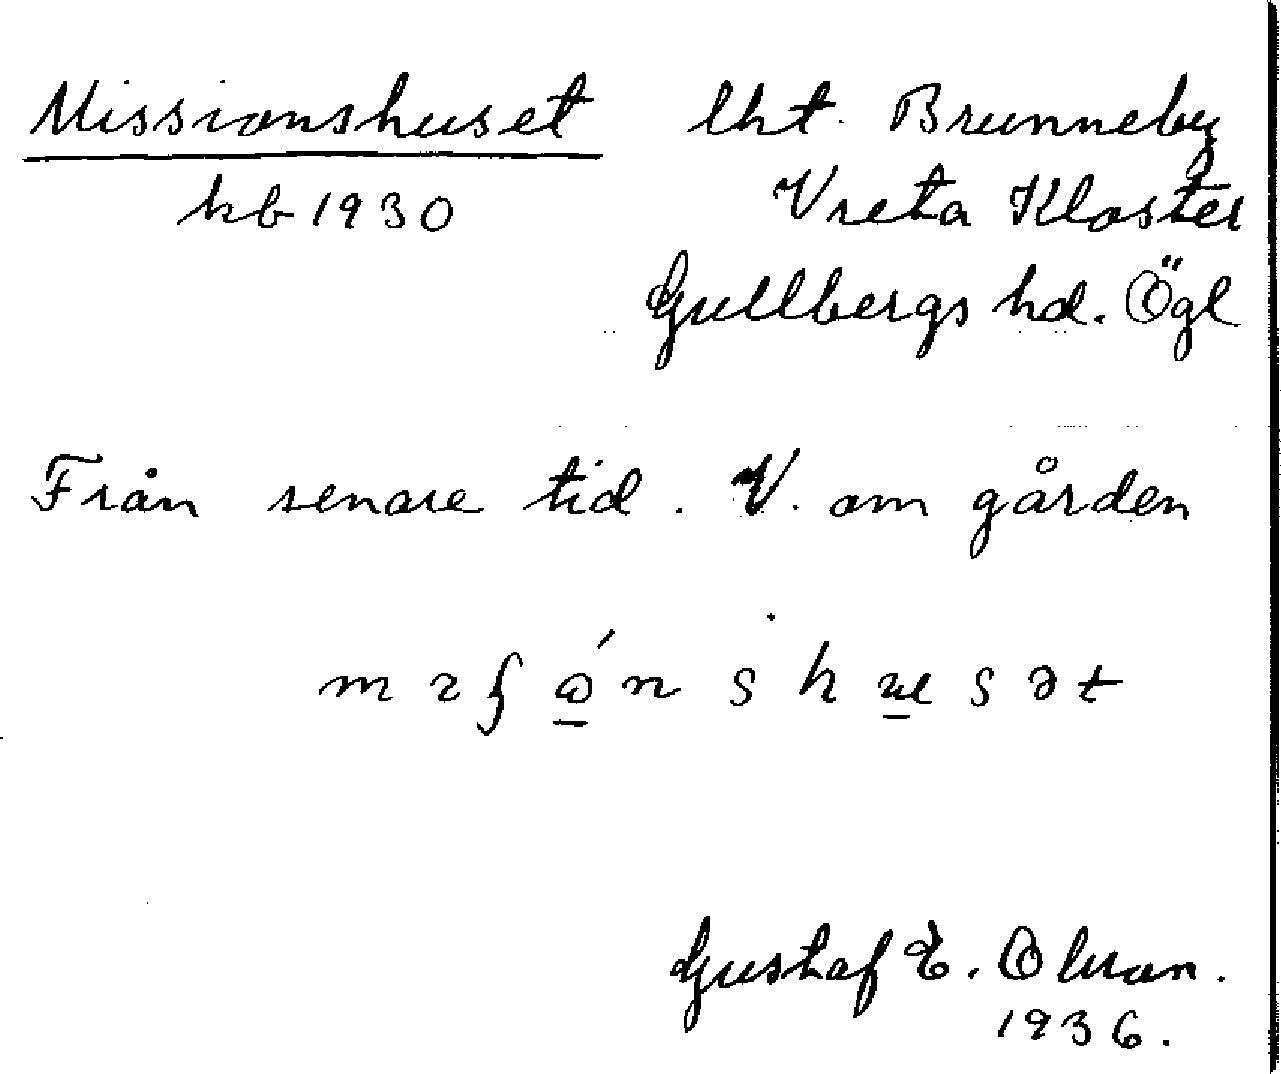 Missionshuset lht. Brunneby
kb 1930 Vreta Kloster
Gullbergs hd. Ögl
Från senare tid. V. om gården
Gustaf E. Olsson.
1936.